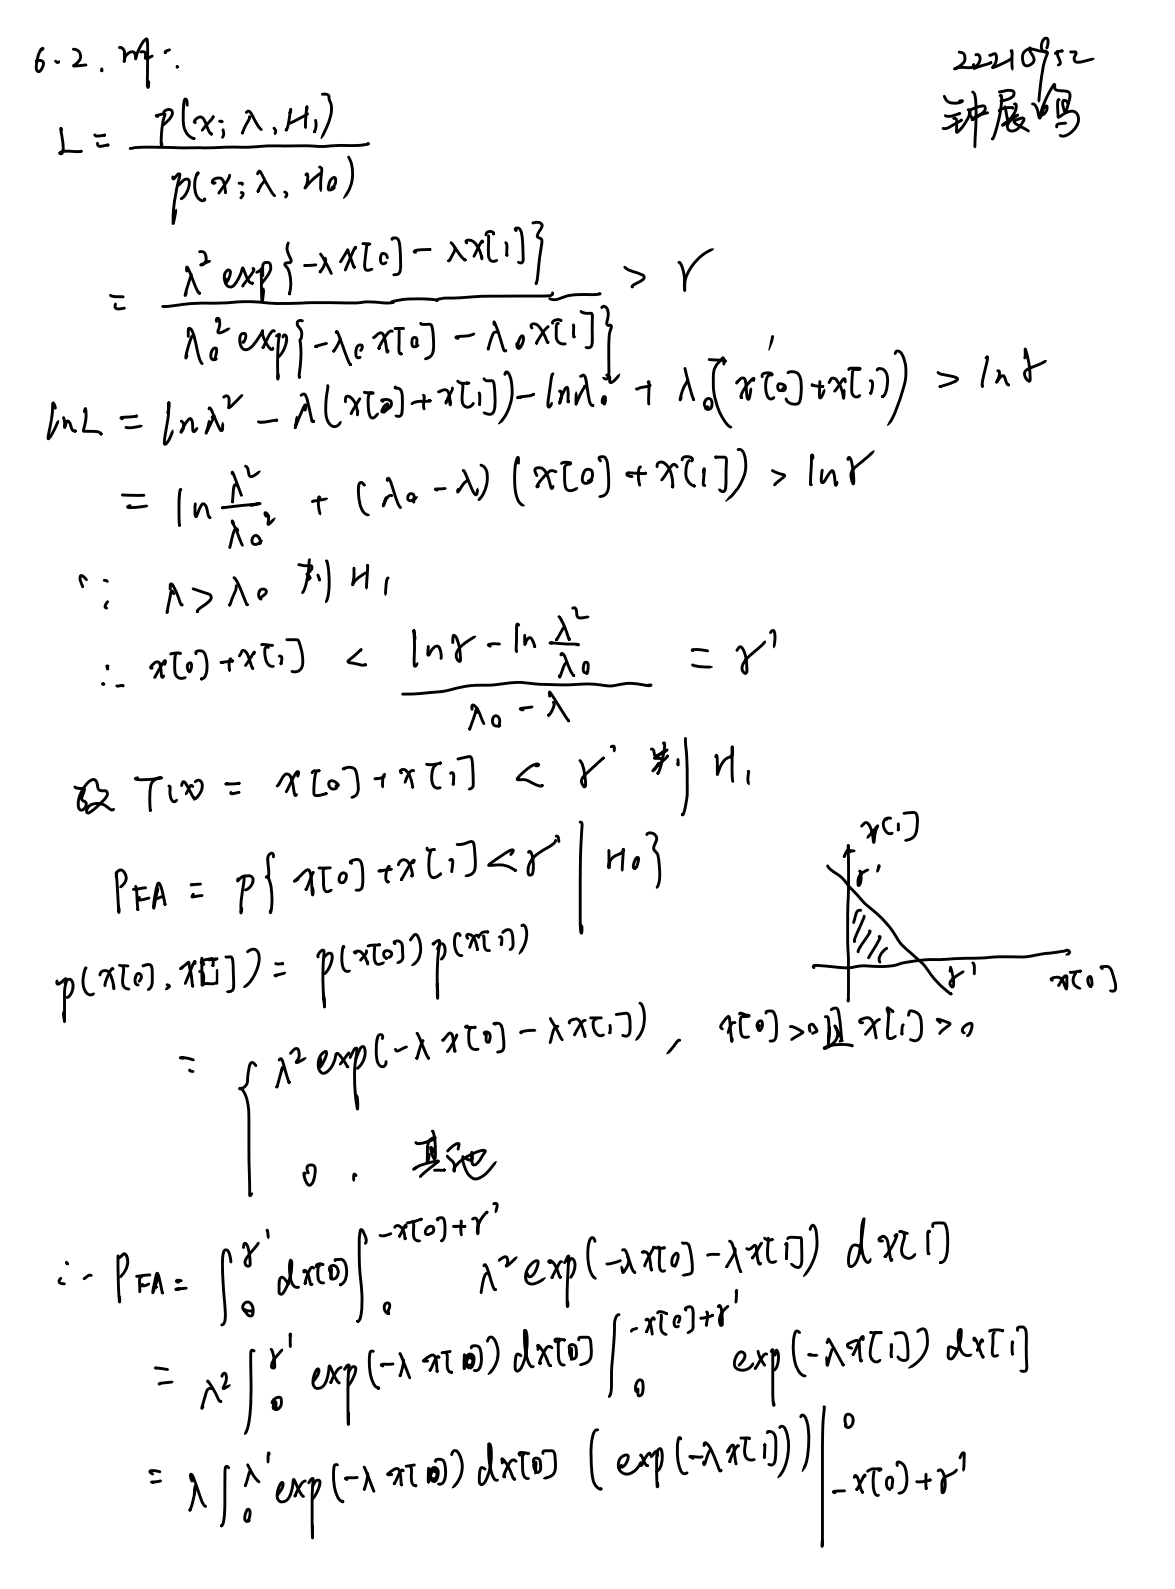 6.2. 解:
22210952
钟展鸣
L = p(x; λ, H₁) / p(x; λ, H₀)
= λ² exp{-λx[0] - λx[1]} / λ₀² exp{-λ₀x[0] - λ₀x[1]} > γ
lnL = lnλ² - λ(x[0]+x[1]) - lnλ₀² + λ₀(x[0]+x[1]) > lnγ
= ln λ²/λ₀² + (λ₀-λ)(x[0]+x[1]) > lnγ
∵ λ > λ₀ 判 H₁
∴ x[0]+x[1] < (lnγ - ln λ²/λ₀) / (λ₀ - λ) = γ'
故 T(x) = x[0]+x[1] < γ' 判 H₁
P_FA = p{x[0]+x[1]<γ' | H₀}
x[1]
γ'
γ'
x[0]
p(x[0], x[1]) = p(x[0])p(x[1])
= { λ² exp(-λx[0] - λx[1]), x[0]>0且x[1]>0
0, 其他
∴ P_FA = ∫₀^γ' dx[0] ∫₀^(-x[0]+γ') λ² exp(-λx[0]-λx[1]) dx[1]
= λ² ∫₀^γ' exp(-λx[0]) dx[0] ∫₀^(-x[0]+γ') exp(-λx[1]) dx[1]
= λ ∫₀^λ' exp(-λx[0]) dx[0] (exp(-λx[1])) |⁰_(-x[0]+γ')